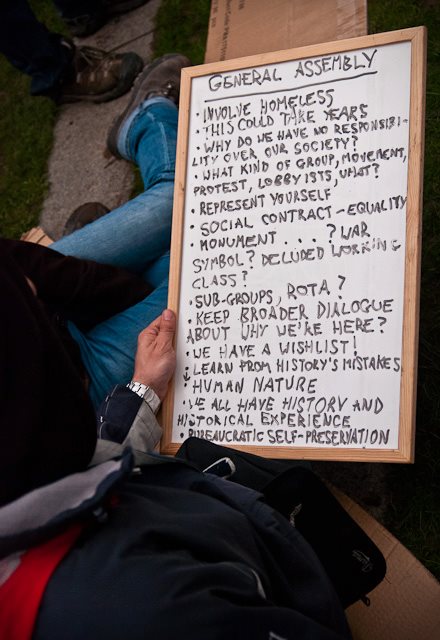 GENERAL ASSEMBLY
• INVOLVE HOMELESS
• THIS COULD TAKE YEARS
• WHY DO WE HAVE NO RESPONSIBI-
LITY OVER OUR SOCIETY?
• WHAT KIND OF GROUP, MOVEMENT,
PROTEST, LOBBYISTS, WHAT?
• REPRESENT YOURSELF
• SOCIAL CONTRACT - EQUALITY
• MONUMENT . . . . ? WAR
SYMBOL? DECLUDED WORKING
CLASS?
• SUB-GROUPS, ROTA?
• KEEP BROADER DIALOGUE
ABOUT WHY WE'RE HERE?
• WE HAVE A WISHLIST!
• LEARN FROM HISTORY'S MISTAKES
HUMAN NATURE
• WE ALL HAVE HISTORY AND
HISTORICAL EXPERIENCE
• BUREAUCRATIC SELF-PRESERVATION